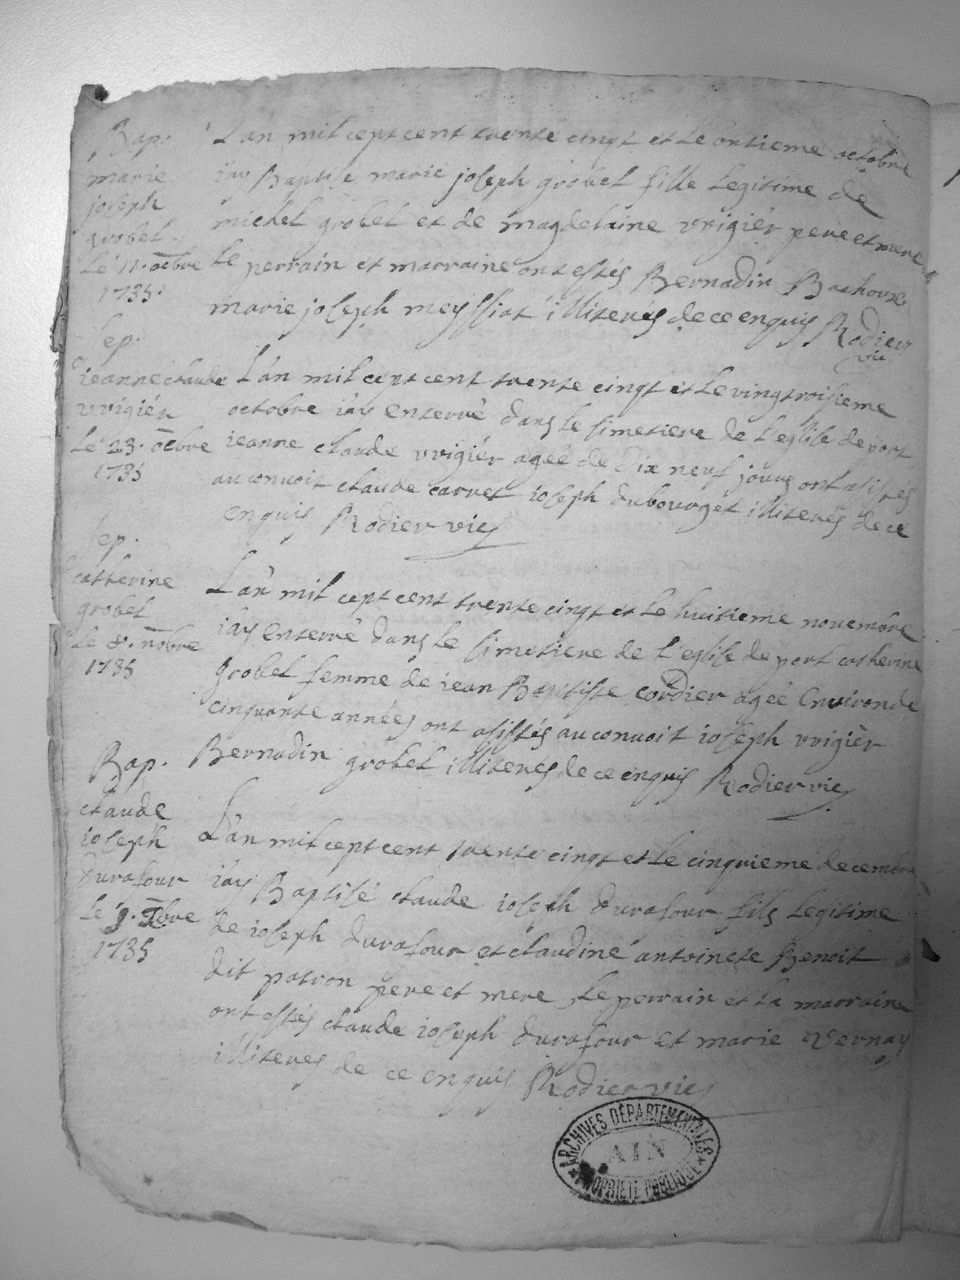 Bap.
marie
joseph
grobet
le 11. octbre
1735.
L'an mil cept cent trente cinqt et le ontieme octobre
iay Baptisé marie joseph grobet fille legitime de
michel grobet et de magdelaine vrigier pere et mere
le perrain et marraine ont estés Bernadin
marie joseph meyssiat illiterés de ce enquis Rodier
vic
sep.
jeanne claude
vrigier
le 23. octbre
1735
L'an mil cept cent trente cinqt et le vingtroisieme
octobre iay enterré dans le simetiere de l'eglise de port
jeanne claude vrigiér ageé de dix neuf jours ont asistés
au convoit claude carret joseph dubourget illiterés de ce
enquis Rodier vic
sep.
catherine
grobet
le 8. nobre
1735
L'an mil cept cent trente cinqt et le huitieme novembre
iay enterré dans le simetiere de l'eglise de port catherine
grobet femme de jean Baptiste cordier ageé environ de
cinquante années ont asistés au convoit joseph vrigièr
Bernadin grobet illiterés de ce enquis Rodier vic
Bap.
claude
joseph
Durafour
le
1735
L'an mil cept cent trente cinqt et le cinquieme decembre
iay Baptisé claude joseph durafour fils legitime
de joseph durafour et claudine antoinete Benoit
dit patron pere et mere le perrain et la marraine
ont estés claude joseph durafour et marie vernay
illiterés de ce enquis Rodier vic
ARCHIVES DÉPARTEMENTALES
AIN
PROPRIÉTÉ PUBLIQUE